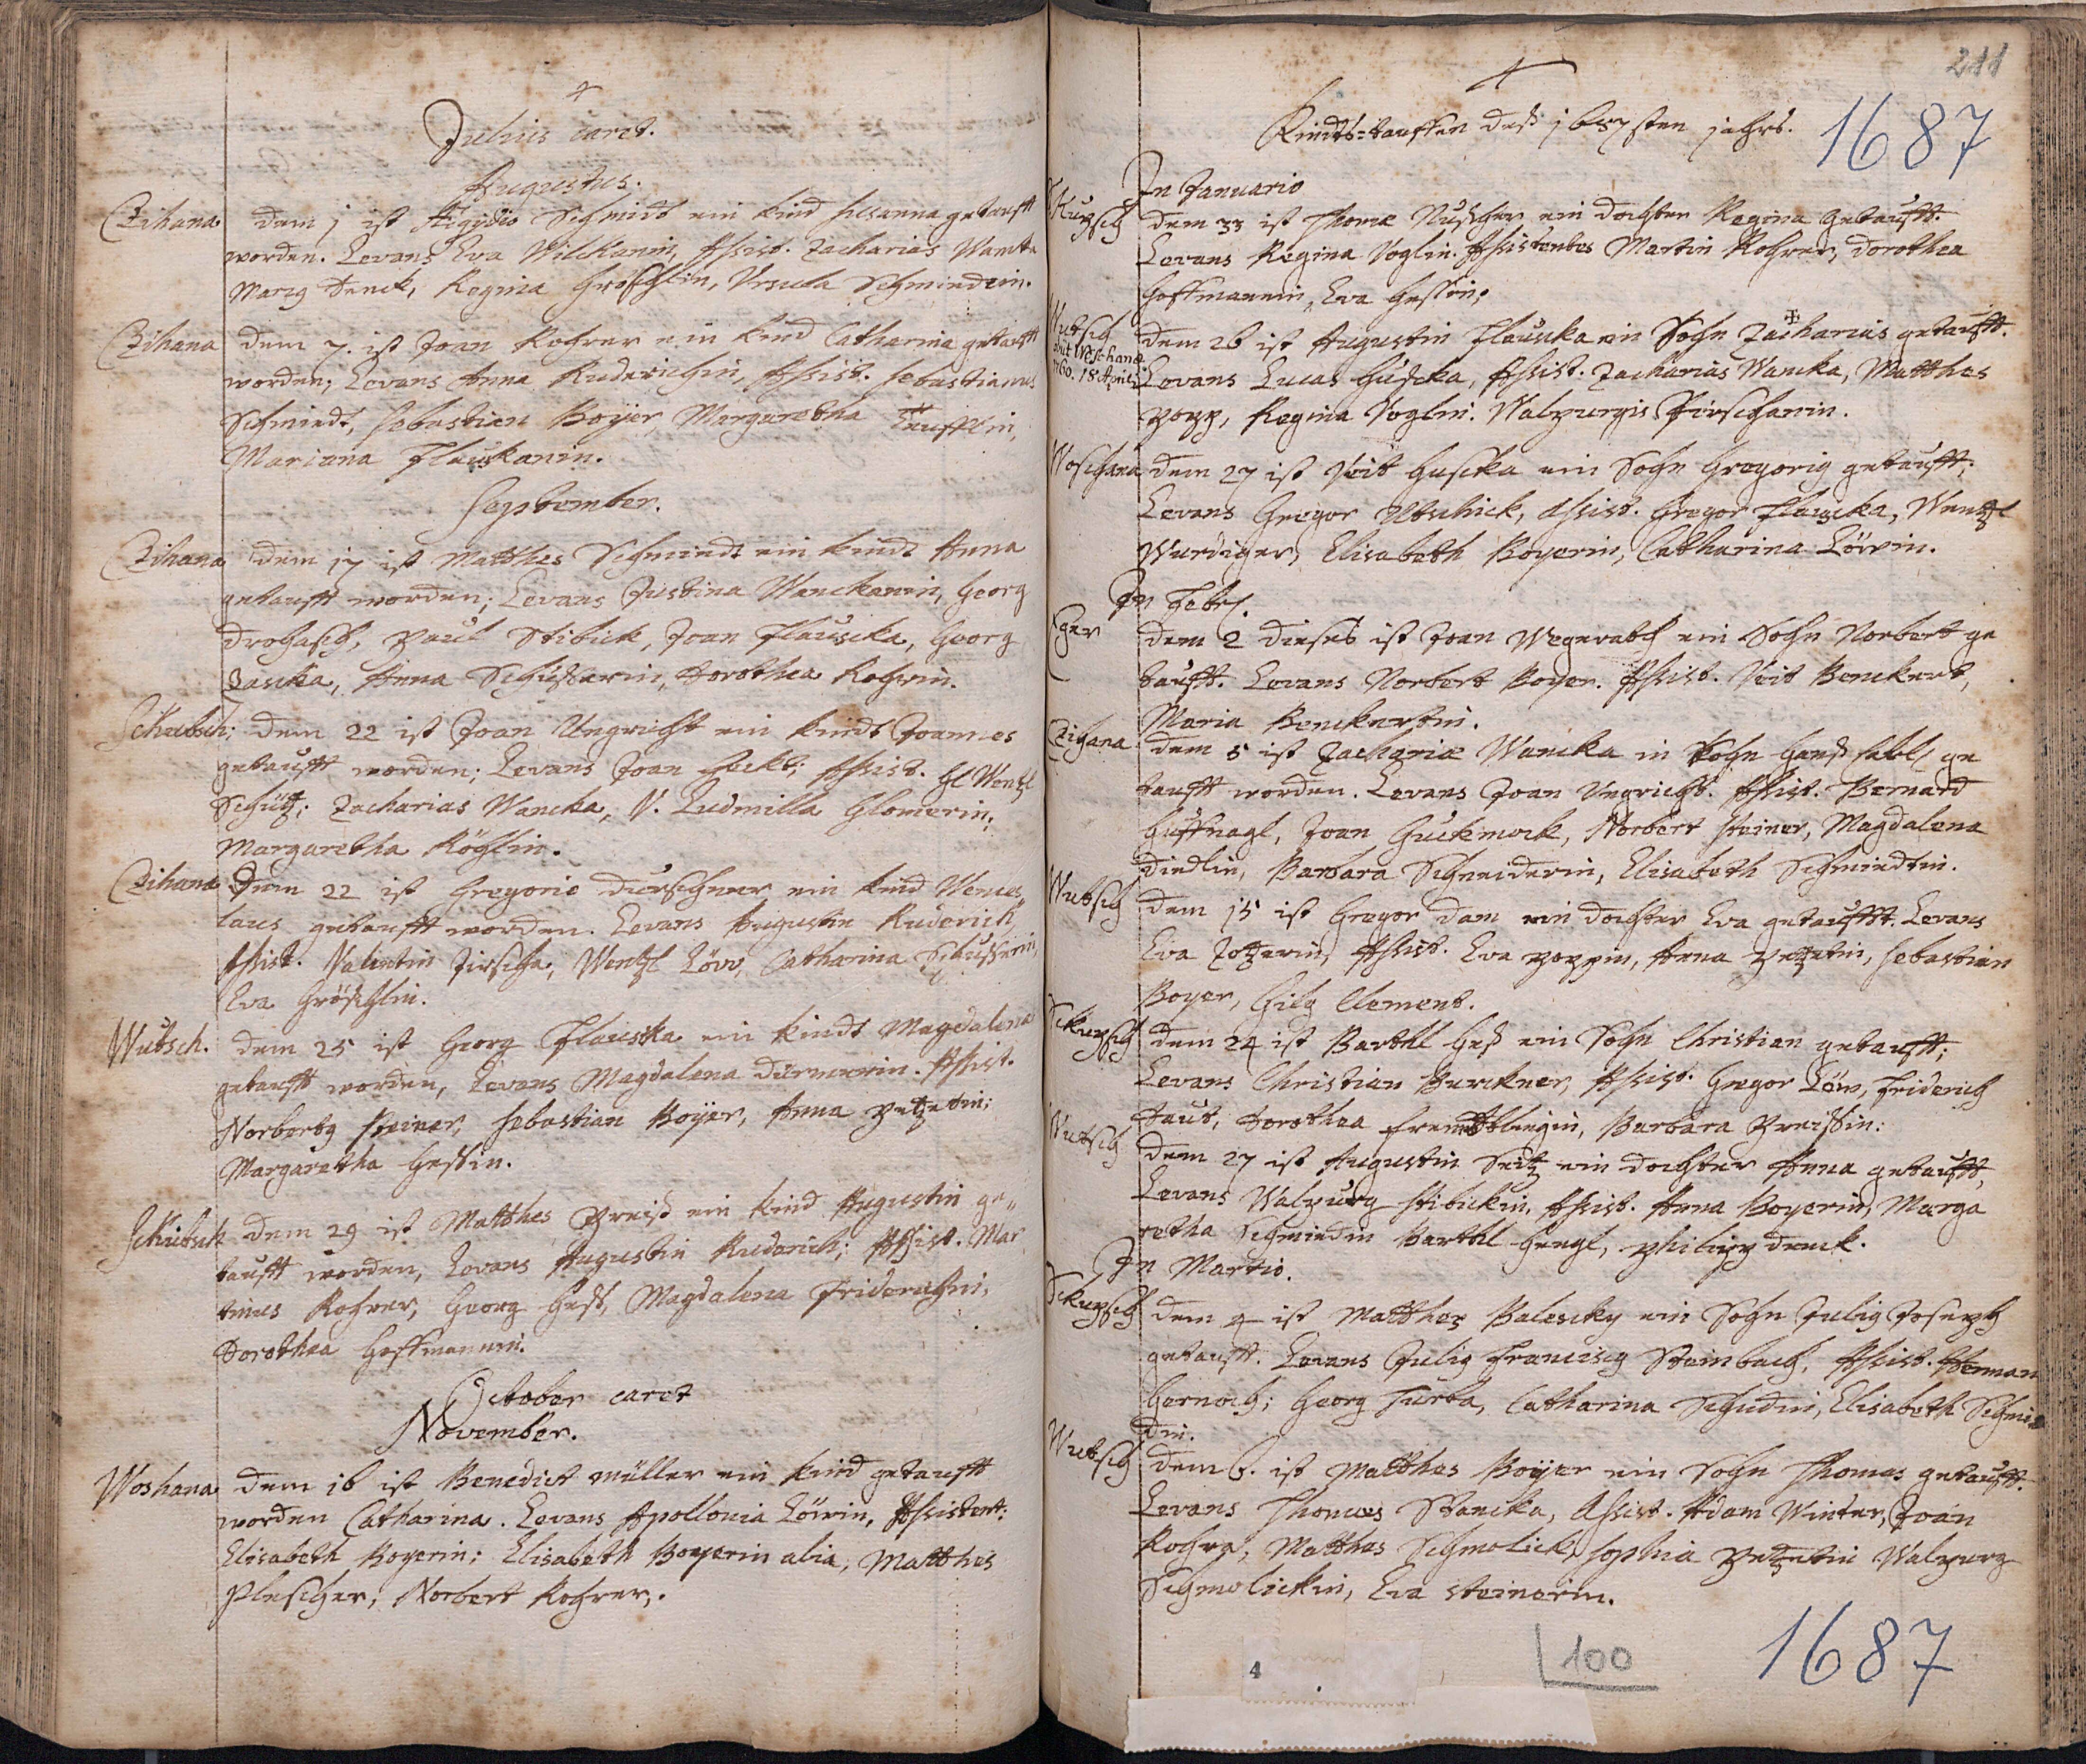 Julius caret.
Augustus.
Czihana dem 1 ist Aegydio Schmidt ein kind Susanna getaufft
worden. Levans Eva Wilckanin, Assist. Zacharias Wantz
Marzg Denck, Regina Gröschlin, Ursula Schmiedein.
Czihana dem 7. ist Joan Rohrer ein kind Catharina getaufft
worden; Levans Anna Ruderichin, Assist. Sebastianus
Schmiedt, Sebastian Boyer, Margaretha Teufflin,
Mariana Flauskanin.
September.
Czihana dem 17 ist Matthes Schmiedt ein kindt Anna
getaufft worden; Levans Justina Wanckanin, Georg
Drohasch, Paul Stibick, Joan Flauscka, Georg
Bascka, Anna Schusterin, Dorothea Rohrin.
Schubsch: dem 22 ist Joan Ungricht ein kindt Joannes
getaufft worden; Levans Joan Hockt; Assist. H Wentzl
Schütz; Zacharias Wancka, V. Ludmilla Glomerin,
Margaretha Röglin.
Czihana Dem 22 ist Gregorio Dürschner ein kind Wences
laus getaufft worden. Levans Augustin Ruderich
Assist. Valentin Zirscha, Wentzl Löw, Catharina Schusterin,
Eva Gröschlin.
Wutsch. dem 25 ist Georg Flauska ein kindt Magdalena
getaufft worden, Levans Magdalena Dürmerin. Assist.
Norbertg Steiner, Sebastian Boyer, Anna Petzetin;
Margaretha Hessin.
Schubsch dem 29 ist Matthes Preiß ein kind Augustin ge„
taufft worden, Levans Augustin Ruderich; Assist. Mar
tinus Rohrer, Georg Heß, Magdalena Friderichin,
Dorothea Hoffmannin.
October caret
November.
Woshana dem 16 ist Benedict müller ein kind getaufft
worden Catharina. Levans Apollonia Löwin, Assistent:
Elisabeth Boyerin; Elisabeth Boyerin alia, Matthes
Plescher, Norbert Rohrer.
211
Kindts=tauffen deß 1687sten jahrs. 1687
In Januario
dem 11 ist Thomæ Nuscher ein dochter Regina getaufft.
Levans Regina Voglin. Assistentes Martin Rohrer, Dorothea
Hoffmannin, Eva Hessin.
Wutsch dem 26 ist Augustin Flauska ein Sohn Zacharias getaufft.
obiit Woschanæ 1760. 18 Aprilis Levans Lucas Huscka, Assist. Zacharias Wancka, Matthes
Popp, Regina Voglin. Walpurgis Zirschanin.
Woschana dem 27 ist Veit Huscka ein Sohn Gregorig getaufft;
Levans Gregor Utschick, Assist. Gregor Flauscka, Wentzl
Wurdiger, Elisabeth Boyerin, Catharina Löwin.
In Febr.
Eger dem 2 dieses ist Joan Wegeratsch ein Sohn Norbert ge
taufft. Levans Norbert Boyer. Assist. Veit Benckert,
Maria Benckertin.
Czihana dem 5 ist Zachariæ Wancka ein Sohn Hanß ge
taufft worden. Levans Joan Ungricht. Assist. Bernard
Huffnagl, Joan Guckmock, Norbert Steiner, Magdalena
Diedlin, Barbara Schneiderin, Elisabeth Schmiedtin.
Wutsch dem 15 ist Gregor Dam ein dochter Eva getaufft. Levans
Eva Zotzerin, Assist. Eva Poppin, Anna Petzetin, Sebastian
Boyer, Gilg Clement.
dem 24 ist Barthl Heß ein Sohn Christian getaufft;
Levans Christian Burckner, Assist. Gregor Löw, Friderich
Daut, Dorothea Fremdtlingin, Barbara Preissin:
Wutsch dem 27 ist Augustin Seitz ein dochter Anna getaufft,
Levans Walpurg Stibickin, Assist. Anna Boyerin, Marga
retha Schmiedin Barthl Hengl, Philipp Denck.
In Martio.
dem 4 ist Matthes Balescky ein Sohn Julig Joseph
getaufft. Levans Julig Franciscg Steinbach, Assist. Herman
Hernoch; Georg Turba, Catharina Schudin, Elisabeth Schmie
din.
Wutsch dem 6. ist Matthes Boyer ein Sohn Thomas getaufft.
Levans Thomas Stancka, Assist. Adam Winter, Joan
Rohrer, Matthes Schmolick, Sophia Petzetin Walpurg
Schmolickin, Eva Steinerin.
4
100
1687